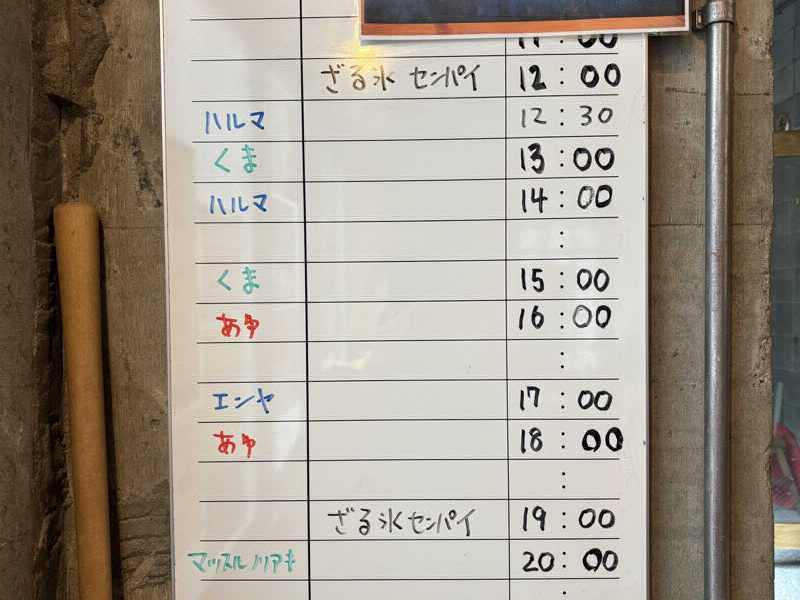 11:00
ざる氷 センパイ 12:00
ハルマ 12:30
くま 13:00
ハルマ 14:00
:
くま 15:00
あゆ 16:00
:
エンヤ 17:00
あゆ 18:00
:
ざる氷センパイ 19:00
マッスルノリアキ 20:00
: